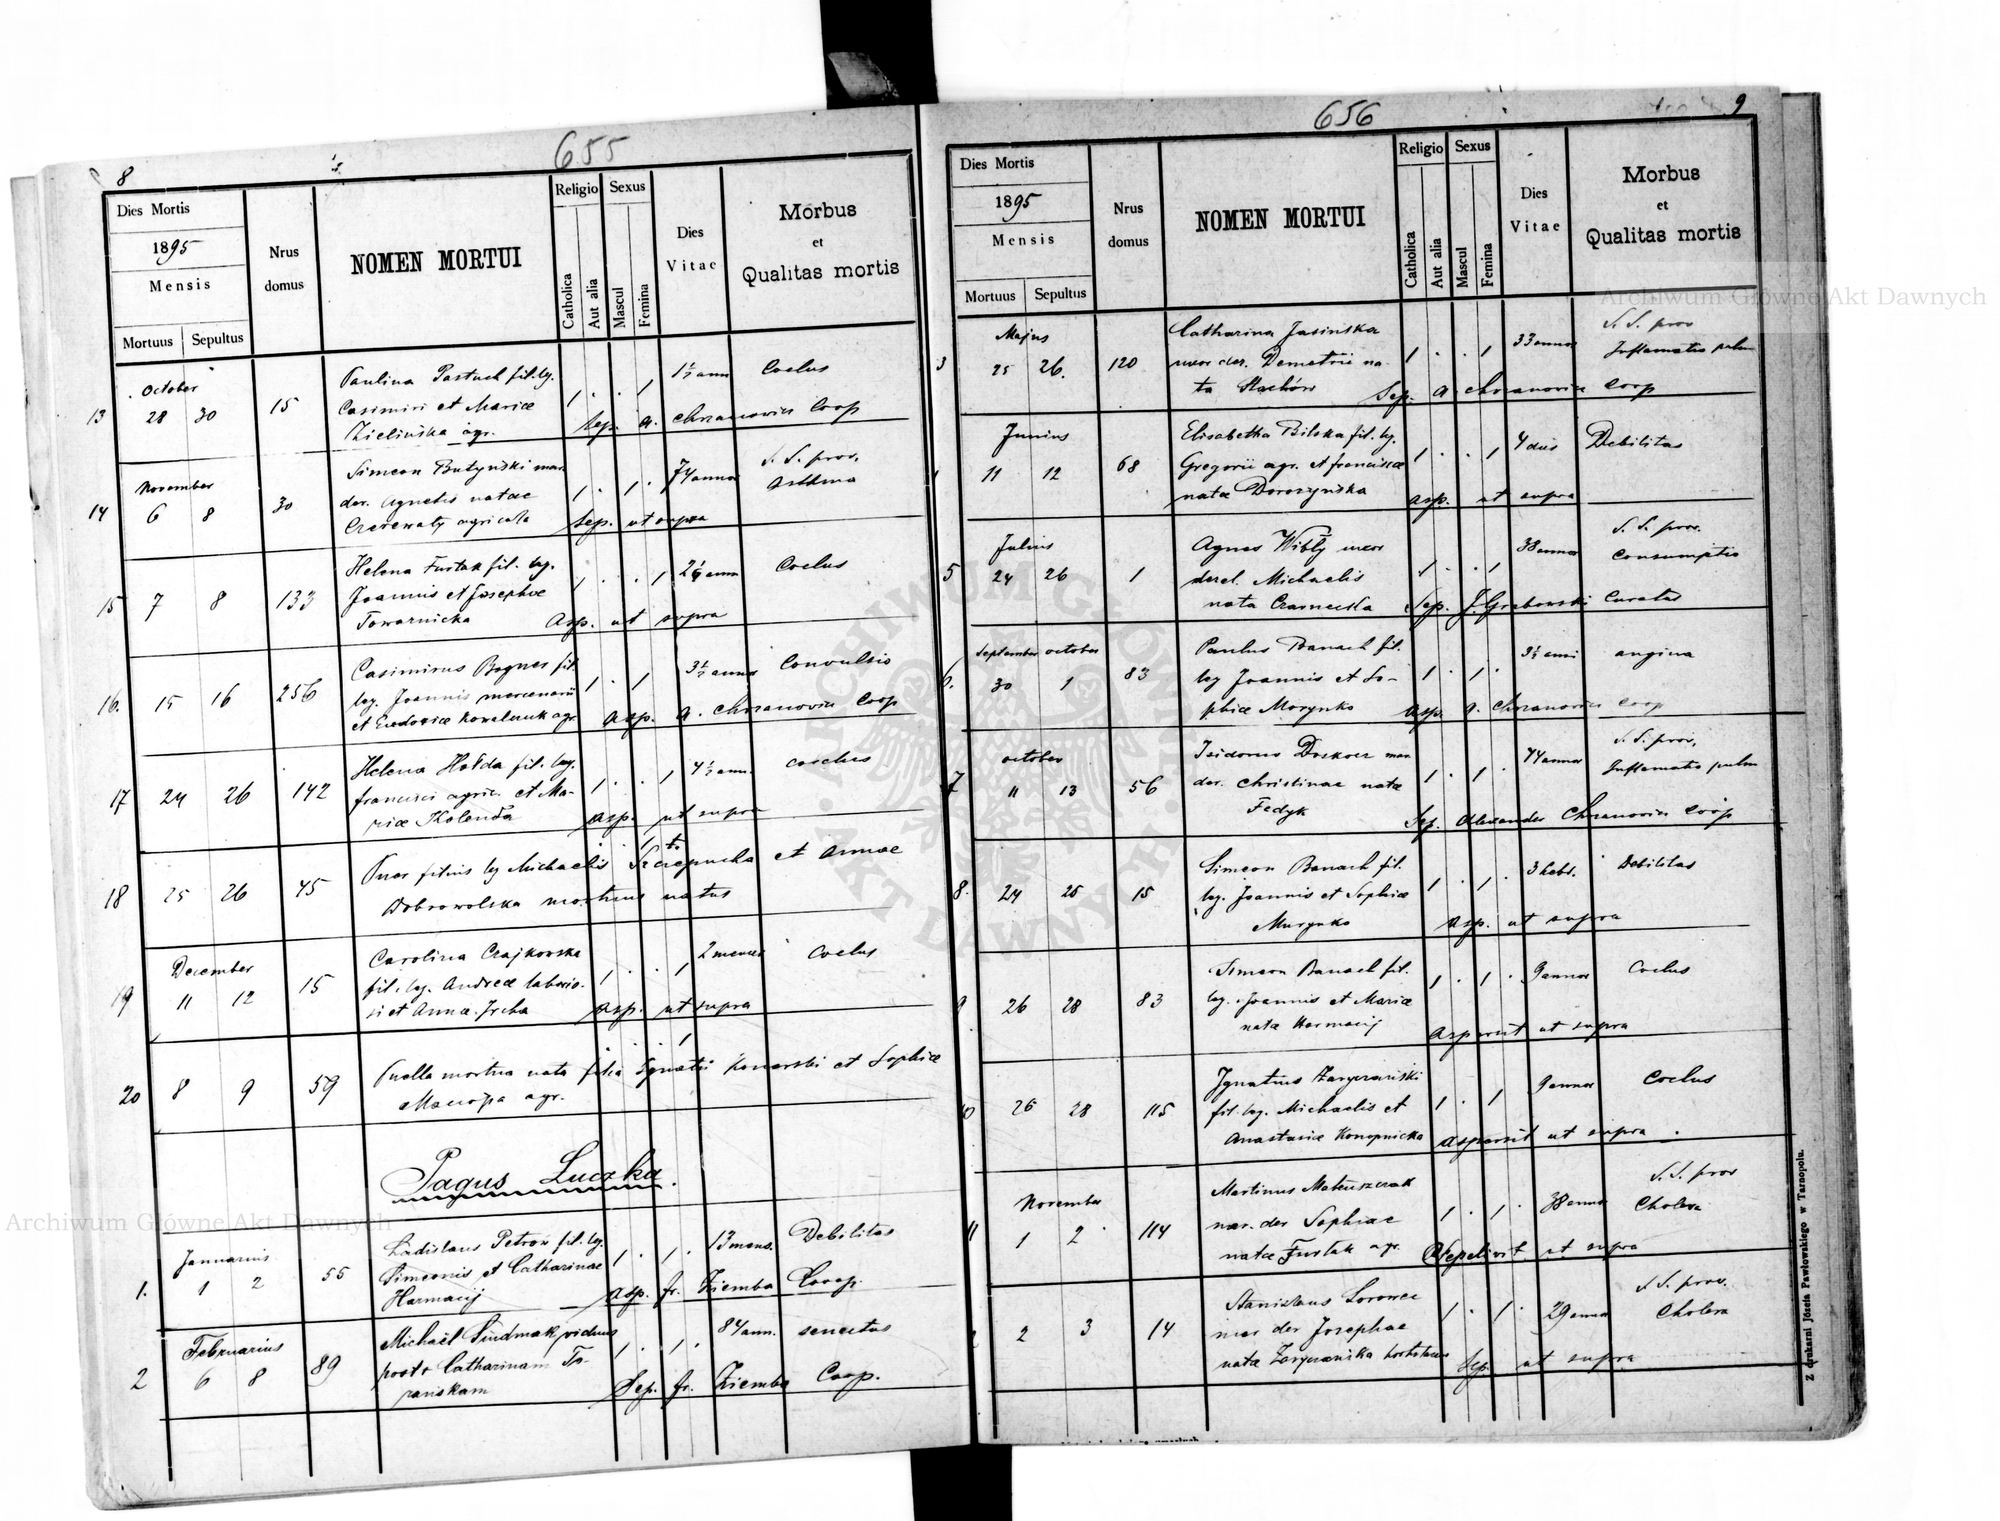 8
655
Dies Mortis
1895
Mensis
Mortuus Sepultus
Nrus domus
NOMEN MORTUI
Religio
Catholica
Aut alia
Sexus
Mascul
Femina
Dies Vitae
Morbus
et
Qualitas mortis
October
13 28 30 15
Paulina Pastuch fil. lg.
Casimiri et Mariae
Zielińska agr.
1 . . 1
1½ ann
Coelus
Sep. A. Chrzanovius Coop
November
14 6 8 30
Simeon Butyński mar.
der. Agnetis natae
agricola
1 . 1 .
74 annor
S. S. prov.
Asthma
Sep. ut supra
15 7 8 133
Helena Furtak fil. lg.
Joannis et Josephae
Towarnicka
1 . . 1
ann
Coelus
Asp. ut supra
16. 15 16 256
Casimirus Bogner fil.
leg. Joannis mercenarii
et Eudoxiae Kowalczuk agr.
1 . 1
3½ annor
Convulsio
Asp. A. Chrzanovius Coop
17 24 26 142
Helena Hołda fil. leg.
Francisci agric. et Ma-
riae Kolenda
1 . . 1
4½ ann.
Coelus
Asp. ut supra
18 25 26 45
Puer filius lg Michaelis Szczepucha et Annae
Dobrowolska mortuus natus
December
19 11 12 15
Carolina Czajkowska
fil. lg. Andreae laborio-
si et Annae Ircha
1 . . 1
2 menses
Coelus
Asp. ut supra
20 8 9 59
Puella mortua nata filia Ignatii Konarski et Sophiae
agr.
Pagus Luczka.
Januarius
1. 1 2 55
Ladislaus Petrów fil. lg.
Simeonis et Catharinae
Harmacij
1 . 1 .
13 mens.
Debilitas
Asp. fr. Ziemba Coop.
Februarius
2 6 8 89
Michaël Sindmak viduus
post + Catharinam To-
ranskam
1 . 1 .
84 ann.
senectus
Sep. fr. Ziemba Coop.
656
9
Dies Mortis
1895
Mensis
Mortuus Sepultus
Nrus domus
NOMEN MORTUI
Religio
Catholica
Aut alia
Sexus
Mascul
Femina
Dies Vitae
Morbus
et
Qualitas mortis
Majus
3 25 26. 120
Catharina Jasinska
uxor der. Demetrii na-
ta Stachów
1 . . 1
33 annor
S. S. prov
Inflamatio pulm
Sep. A. Chrzanovius Coop
Junius
11 12 68
Elisabetha Bilska fil. lg.
Gregorii agr. et Franciscae
natae Doroszyńska
1 . . 1
4 dies
Debilitas
Asp. ut supra
Julius
5 24 26 1
Agnes Wibły uxor
derel. Michaelis
nata Czarnecka
1 . . 1
38 annor
S. S. prov.
Consumptio
Sep. J. Grabowski Curatus
September October
6. 30 1 83
Paulus Banach fil.
leg Joannis et So-
phiae Morynko
1 . 1 .
3½ anni
angina
Asp. A. Chrzanovius Coop
October
7 11 13 56
Isidorus Doskocz mar
der. Christinae natae
Fedyk
1 . 1 .
74 annor
S. S. prov.
Inflamatio pulm
Sep. Alexander Chrzanovius Coop
8. 24 25 15
Simeon Banach fil.
leg. Joannis et Sophiae
Murynko
1 . 1 .
3 hebd.
Debilitas
Asp. ut supra
9 26 28 83
Simeon Banach fil.
leg. Joannis et Mariae
natae Harmacij
1 . 1 .
9 annor
Coelus
Aspersit ut supra
10 26 28 115
Ignatius Zaryczański
fil. leg. Michaelis et
Anastasiae Konopnicka
1 . 1
9 annor
Coelus
Aspersit ut supra .
November
11 1 2 114
Martinus Mateuszczak
mar. der Sophiae
natae Furtak agr.
1 . 1 .
38 annor
S. S. prov
Cholera
Sepelivit ut supra
2 3 14
Stanislaus
mar der Josephae
natae Zaryczańska
1 . 1 .
29 annor
S. S. prov.
Cholera
Sep. ut supra
Z drukarni Józefa Pawłowskiego w Tarnopolu.
Archiwum Główne Akt Dawnych
Archiwum Główne Akt Dawnych
ARCHIWUM GŁÓWNE
AKT DAWNYCH